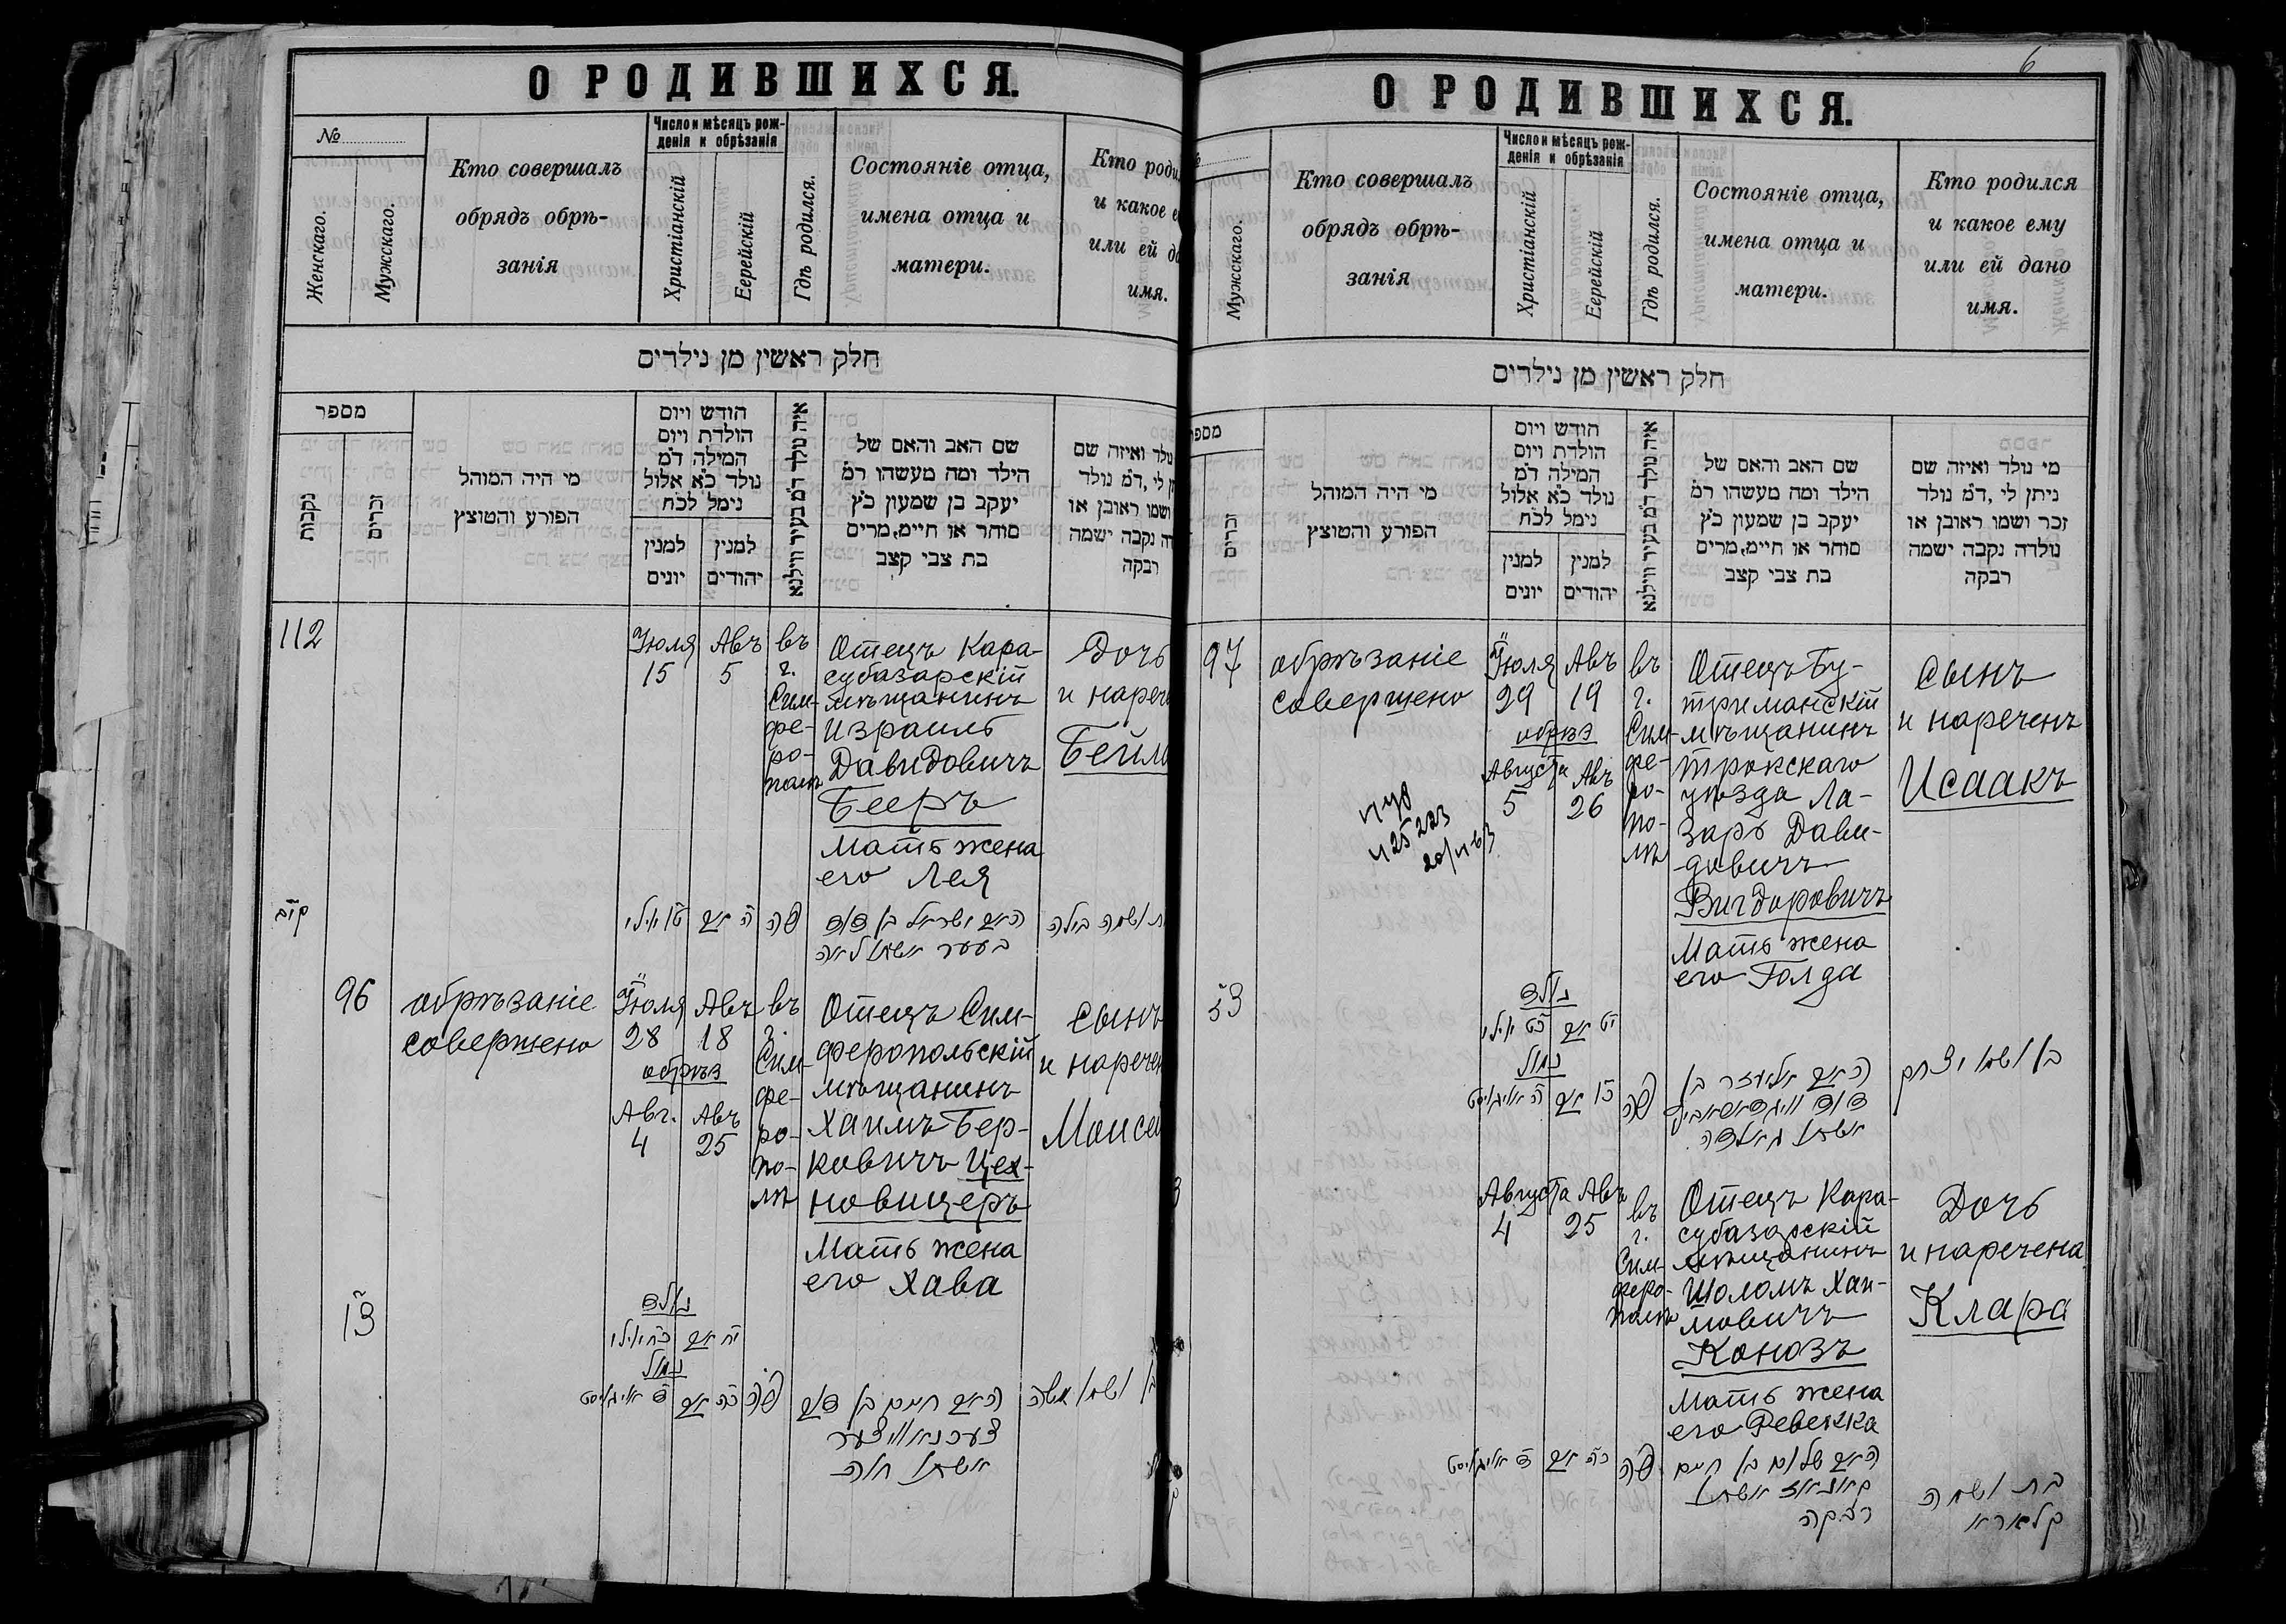 О РОДИВШИХСЯ.
№
Женскаго.
Мужскаго.
Кто совершалъ
обрядъ обрѣ-
занія
Число и мѣсяцъ рож-
денія и обрѣзанія
Христіанскій
Еерейскій
Гдѣ родился.
Состояніе отца,
имена отца и
матери.
Кто роди
и какое е
или ей да
имя.
חלק ראשין מן נילדים
מספר
נקבות
זכרים
מי היה המוהל
הפורע והטוצץ
הודש ויום
הולדת ויום
המילה ד״מ
נולד כ״א אלול
נימל לכ״ח
למנין
יונים
למנין
יהודים
איה נולד ד״מ בעיר ווילנא
שם האב והאם של
הילד ומה מעשהו ר״מ
יעקב בן שמעון כ״ץ
סוחר או חיים, מרים
בת צבי קצב
נולד ואיזה שם
ן לי, ד״מ נולד
ושמו ראובן או
דה נקבה ישמה
רבקה
112
Іюля
15
Авъ
5
въ
г.
Сим-
фе-
ро-
полѣ
Отецъ Кара-
субазарскій
мѣщанинъ
Израиль
Давидовичъ
Бееръ
Мать жена
его Лея
Дочь
и нарече
Бейла
קי״ב
ט״ו יולי
ה׳ אב
פה
האב ישראל בן דוד
בעער אשתו לאה
ת ושמה ביילה
96
обрѣзаніе
совершено
Іюля
28
Авъ
18
обрѣз
Авг.
4
Авъ
25
въ
г.
Сим-
фе-
ро-
по-
лѣ
Отецъ Сим-
феропольскій
мѣщанинъ
Хаимъ Бер-
ковичъ Цех-
новицеръ
Мать жена
его Хава
сынъ
и наречен
Моисей
צו
נולד
כ״ח יולי
י״ח אב
נמול
ד׳ אויגוסט
כ״ה אב
פה
האב חיים בן דוב
צעכנאוויצער
אשתו חוה
בן ושמו משה
6
О РОДИВШИХСЯ.
Мужскаго.
Кто совершалъ
обрядъ обрѣ-
занія
Число и мѣсяцъ рож-
денія и обрѣзанія
Христіанскій
Еерейскій
Гдѣ родился.
Состояніе отца,
имена отца и
матери.
Кто родился
и какое ему
или ей дано
имя.
חלק ראשין מן נילדים
מספר
זכרים
מי היה המוהל
הפורע והטוצץ
הודש ויום
הולדת ויום
המילה ד״מ
נולד כ״א אלול
נימל לכ״ח
למנין
יונים
למנין
יהודים
איה נולד ד״מ בעיר ווילנא
שם האב והאם של
הילד ומה מעשהו ר״מ
יעקב בן שמעון כ״ץ
סוחר או חיים, מרים
בת צבי קצב
מי נולד ואיזה שם
ניתן לי, ד״מ נולד
זכר ושמו ראובן או
נולדה נקבה ישמה
רבקה
97
обрѣзаніе
совершено
Іюля
29
Авъ
19
обрѣз
Августа
5
Авъ
26
въ
г.
Сим-
фе-
ро-
по-
лѣ
Отецъ Бу-
триманскій
мѣщанинъ
Трокскаго
уѣзда Ла-
заръ Дави-
довичъ
Вигдоровичъ
Мать жена
его Голда
сынъ
и нареченъ
Исаакъ
צז
נולד
כ״ט יולי
י״ט אב
נמול
ה׳ אויגוסט
כ״ו אב
פה
האב אליעזר בן
דוד וויגדאראוויץ
אשתו גאלדה
בן ושמו יצחק
Августа
4
Авъ
25
въ
г.
Сим-
феро-
полѣ
Отецъ Кара-
субазарскій
мѣщанинъ
Шоломъ Хаи-
мовичъ
Конозъ
Мать жена
его Ревекка
Дочь
и наречена
Клара
ד׳ אויגוסט
כ״ה אב
פה
האב שלום בן חיים
קאנאז אשתו
רבקה
בת ושמה
קלארא